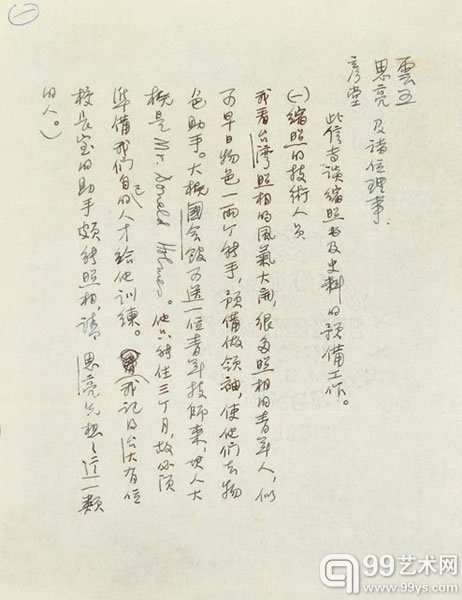 一
雲五
思亮 及諸位理事.
彥堂
此信專談縮照書及史料的預備工作。
(一)縮照的技術人員
我看台灣照相的風氣大開,很多照相的青年人,似
可早日物色一兩個能手,預備做領袖,使他們去物
色助手。大概國會館可送一位青年技師來,其人大
概是Mr. Donald Holmes。他只能住三个月,故必須
準備我們自己的人才給他訓練。我記得台大有位
校長室的助手頗能照相,請思亮先想想這一類
的人。)
99艺术网
www.99ys.com